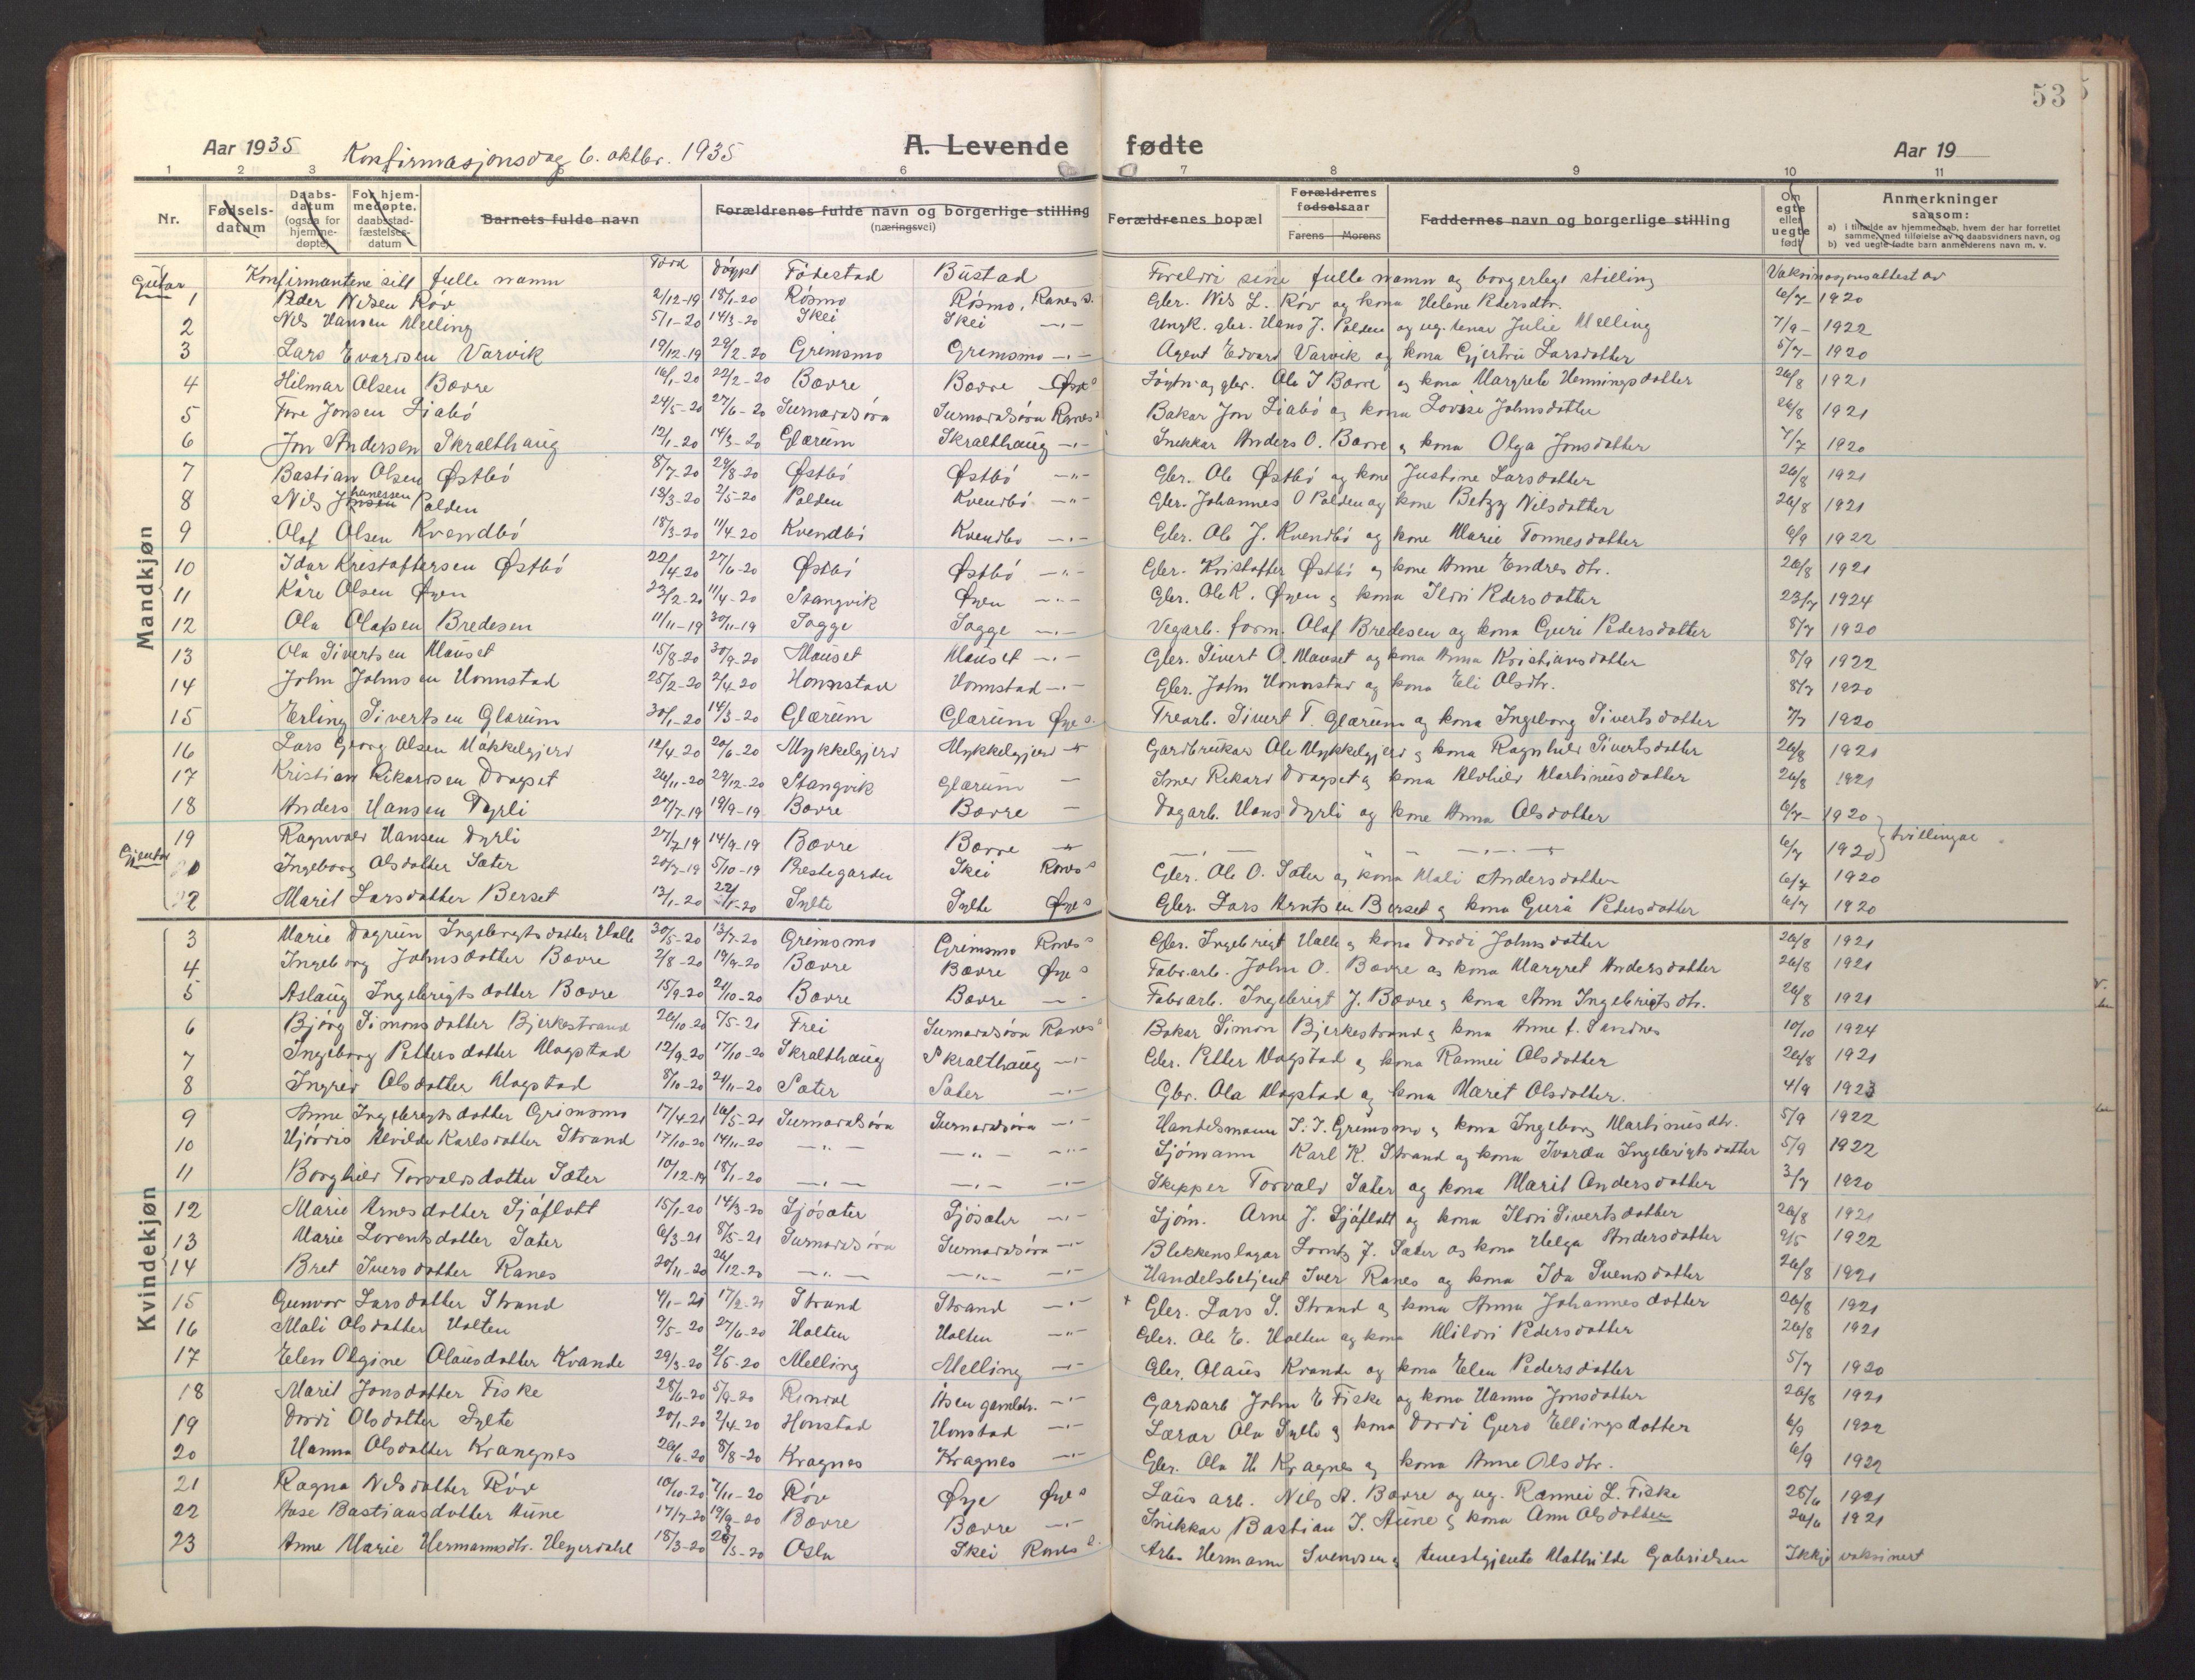 53
Aar 1935 Konfirmasjonsdag 6. oktbr. 1935 A. Levende fødte Aar 19
1 2 3 6 7 8 9 10 11
Nr. Fødselsdatum Daabsdatum (ogsaa for hjemmedøpte) For hjemmedøpte. daabsstadfæstelsesdatum Barnets fulde navn Forældrenes fulde navn og borgerlige stilling (næringsvei) Forældrenes bopæl Forældrenes fødselsaar Farens Morens Faddernes navn og borgerlige stilling Om egte eller uegte født Anmerkninger saasom:
a) i tilfælde av hjemmedaab, hvem der har forrettet samme, med tilføielse av to daabsvidners navn, og
b) ved uegte fødte barn anmelderens navn m. v.
Gutar Konfirmantene sitt fulle namn Född döypt Födestad Bustad Foreldri sine fulle namn og borgerlege stilling Vaksinasjonsattest av
Mandkjøn
1 Peder Nilsen Röv 2/12-19 18/1-20 Rösmo Rösmo, Ranes s. Gbr. Nils L. Röv og kona Helene Pedersdtr. 6/7- 1920
2 Nils Hansen Melling 5/1-20 14/3-20 Skei Skei -"- Ungk. gbr. Hans J. Polden og ug. tenar Julie Melling 7/9- 1922
3 Lars Evardsen Varvik 19/12-19 29/2-20 Grimsmo Grimsmo -"- Agent Edvard Varvik og kona Gjertru Larsdotter 5/7- 1920
4 Hilmar Olsen Bævre 16/1-20 22/2-20 Bævre Bævre Øye s Ole J Bævre og kona Margrete Henningsdotter 26/8 1921
5 Tore Jonsen Liabö 24/5-20 27/6-20 Surnadalsöra Surnadalsöra Ranes s Bakar Jon Liabö og kona Lovise Johnsdotter 26/8 1921
6 Jon Andersen Skralthaug 12/1-20 14/3-20 Glærum Skralthaug -"- Snekkar Anders O. Bævre og kona Olga Jonsdotter 7/7 1920
7 Bastian Olsen Østbö 8/7-20 29/8-20 Østbö Østbö -"- Gbr. Ole Østbö og kone Justine Larsdotter 26/8 1921
8 Nils Johanessen Polden 13/3-20 2/5-20 Polden Kvendbö -"- Gbr. Johannes O Polden og kone Betzy Nilsdotter 26/8 1921
9 Olaf Olsen Kvendbö 18/3-20 11/4-20 Kvendbö Kvendbö -"- Gbr. Ole J. Kvendbö og kone Marie Tonnesdotter 6/9 1922
10 Idar Kristoffersen Østbö 22/4-20 27/6-20 Østbö Østbö -"- Gbr. Kristoffer Østbö og kone Anne Endresdtr. 26/8 1921
11 Kåre Olsen Øyen 23/2-20 11/4-20 Stangvik Øyen -"- Gbr. Ole K. Øyen og kona Ildri Pedersdotter 23/7 1924
12 Ola Olafsen Bredesen 11/11-19 30/11-19 Sogge Sogge -"- Vegarb. form. Olaf Bredesen og kona Guri Pedersdotter 8/7 1920
13 Ola Sivertsen Mauset 15/8-20 30/9-20 Mauset Mauset -"- Gbr. Sivert O. Mauset og kona Anna Kristiansdotter 8/9 1922
14 John Johnsen Honnstad 25/2-20 2/4-20 Honnstad Honnstad -"- Gbr. John Honnstad og kona Eli Olsdtr. 8/7 1920
15 Erling Sivertsen Glærum 30/1-20 14/3-20 Glærum Glærum Øye s. Trearb. Sivert T. Glærum og kona Ingeborg Sivertsdotter 7/7 1920
16 Lars Georg Olsen Møkkelgjerd 12/4-20 20/6-20 Mykkelgjerd Mykkelgjerd -"- Gardbrukar Ole Mykkelgjerd og kona Ragnhild Sivertsdotter 26/8 1921
17 Kristian Rikardsen Dragset 26/11-20 29/12-20 Stangvik Glærum - Smed Rikard Dragset og kona Alvhild Martinusdotter 26/8 1921
18 Anders Hansen Dyrli 27/7-19 19/9-19 Bævre Bævre - Dagarb. Hans Dyrli og kone Anna Olsdotter 6/7- 1920
19 Ragnvald Hansen Dyrli 27/7 19 14/9-19 Bævre Bævre -"- -"- 6/7 1920 tvillingar
Gjentor
Ingeborg Olsdotter Sæter 20/7-19 5/10-19 Prestegarden Skei Ranes s Gbr. Ole O. Sæter og kona Mali Andersdotter 6/7 1920
2 Marit Larsdotter Berset 13/1-20 22/1-20 Sylte Sylte Øye s Gbr. Lars Arntsen Berset og kona Gurå Pedersdotter 6/7 1920
Kvindekjøn
3 Marie Dagrun Ingebrigtsdotter Halle 30/5-20 13/7-20 Grimsmo Grimsmo Ranes s Gbr. Ingebrigt Halle og kona Dordi Johnsdotter 26/8 1921
4 Ingeborg Johnsdotter Bævre 2/8-20 19/9-20 Bævre Bævre Øye s Fabr.arb. John O. Bævre og kona Margret Andersdotter 26/8 1921
5 Aslaug Ingebrigtsdotter Bævre 15/9-20 21/10-20 Bævre Bævre - Fabr.arb. Ingebrigt J. Bævre og kona Ann Ingebrigtsdtr. 26/8 1921
6 Bjørg Simonsdotter Bjerkestrand 26/10-20 7/5-21 Frei Surnadalsöra Ranes s Bakar Simon Bjerkestrand og kona Anne f. Sandnes 10/10 1924
7 Ingeborg Pettersdotter Mogstad 12/9-20 17/10-20 Skralthaug Skralthaug -"- Gbr. Petter Mogstad og kona Rannei Olsdotter 26/8 1921
8 Ingrid Olsdotter Mogstad 8/10-20 21/11-20 Sæter Sæter -"- Gbr. Ola Mogstad og kona Marit Olsdotter. 4/9 1923
9 Anne Ingebrigtsdotter Grimsmo 17/4-21 16/5-21 Surnadalsöra Surnadalsöra -"- Handelsmann I. I. Grimsmo og kona Ingeborg Martinusdtr. 5/9 1922
10 Hjördis Alvilde Karlsdotter Strand 17/10-20 14/11-20 -"- -"- -"- Sjömann Karl K. Strand og kona Ivarda Ingebrigtsdotter 5/9 1922
11 Borghild Torvaldsdotter Sæter 10/12-19 18/1-20 -"- -"- -"- Skipper Torvald Sæter og kona Marit Andersdotter 3/7 1920
12 Marie Arnesdotter Sjöflott 15/1-20 14/3-20 Sjösæter Sjösæter -"- Sjöm. Arne J. Sjöflott og kona Ildri Sivertsdotter 26/8 1921
13 Marie Lorentsdotter Sæter 6/3-21 8/5-21 Surnadalsöra Surnadalsöra -"- Blekkenslagar Lorents J. Sæter og kona Helga Andersdotter 9/5 1922
14 Bret Iversdotter Ranes 20/11-20 26/12-20 -"- -"- -"- Handelsbetjent Iver Ranes og kona Ida Svensdotter 26/8 1921
15 Gunvor Larsdotter Strand 4/1-21 17/2-21 Strand Strand -"- Gbr. Lars S. Strand og kona Anna Johannesdotter 26/8 1921
16 Mali Olsdotter Holten 9/5-20 27/6-20 Holten Holten -"- Gbr. Ole E. Holten og kona Mildri Pedersdotter 26/8 1921
17 Elen Olgine Olausdotter Kvande 29/3-20 2/5-20 Melling Melling -"- Gbr. Olaus Kvande og kona Elen Pedersdotter 5/7 1920
18 Marit Jonsdotter Fiske 28/6-20 5/9-20 Rindal Åsen gamleh. -"- Gardsarb John E Fiske og kona Hanna Jonsdotter 26/8 1921
19 Dordi Olsdotter Sylte 20/1-20 2/4-20 Honstad Honstad -"- Lærar Ola Sylte og kona Dordi Guro Ellingsdotter 6/9 1922
20 Hanna Olsdotter Krangnes 26/6-20 8/8-20 Kragnes Kragnes -"- Gbr. Ola H Kragnes og kona Anne Olsdtr. 6/9 1922
21 Ragna Nilsdotter Röv 10/10-20 7/11-20 Röv Øye Øye s Laus arb. Nils A. Bævre og ug. Rannei L. Fiske 28/6 1921
22 Aase Bastiansdotter Aune 17/7-20 19/9-20 Bævre Bævre -"- Snikkar Bastian I. Aune og kona Ann Olsdotter 26/6 1921
23 Anne Marie Hermannsdtr. Heyerdahl 18/3-20 28/5-20 Oslo Skei Ranes s. Arb. Hermann Svendsen og tenestgjente Mathilde Gabrielsen Ikkje vaksinert